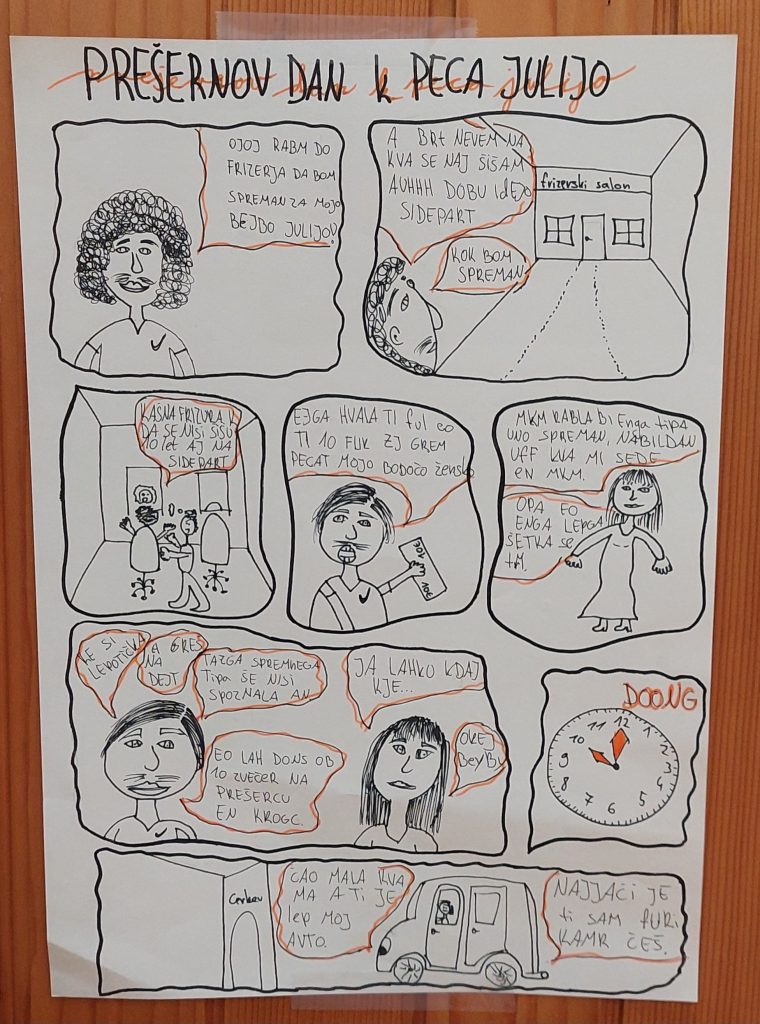 PREŠERNOV DAN k PECA JULIJO
OJOJ RABM DO
FRIZERJA DA BOM
SPREMAN ZA MOJO
BEJBO JULIJO!
A BRt NEVEM NA
KVA SE NAJ ŠIŠAM
AUHHH DOBU IdEJO
SIDEPART
KOK BOM
SPREMAN
frizerski salon
KAŠNA FRIZURA
DA SE NISI ŠIŠU
10 let AJ NA
SIDEPART
EJGA HVALA TI ful eo
TI 10 FUK ZJ GREM
PECAT MOJO BODOČO žensko
10€
MKM RABLA BI Enga tipa
UNO SPREMAN, NABILDAN
UFF KVA MI SEDE
EN MKM.
OPA EO
ENGA LEPGA
ŠETKA SE
tM.
KE SI
LEPOTIČKA
A GREŠ
NA
DEJT
TAZGA SPREMNEGA
tipA ŠE NISI
SPOZNALA AN
JA LAHKO KDAJ
KJE...
EO LAH DONS OB
10 ZVEČER NA
PREŠERCU
EN KROGC.
OKEJ
BEYBI
DOONG
12
1
2
3
4
5
6
7
8
9
10
11
Cerkev
ČAO MALA KVA
MA A TI JE
lEP MOJ
AVTO.
NAJJAČI JE
ti SAM fURI
KAMR ČEŠ.